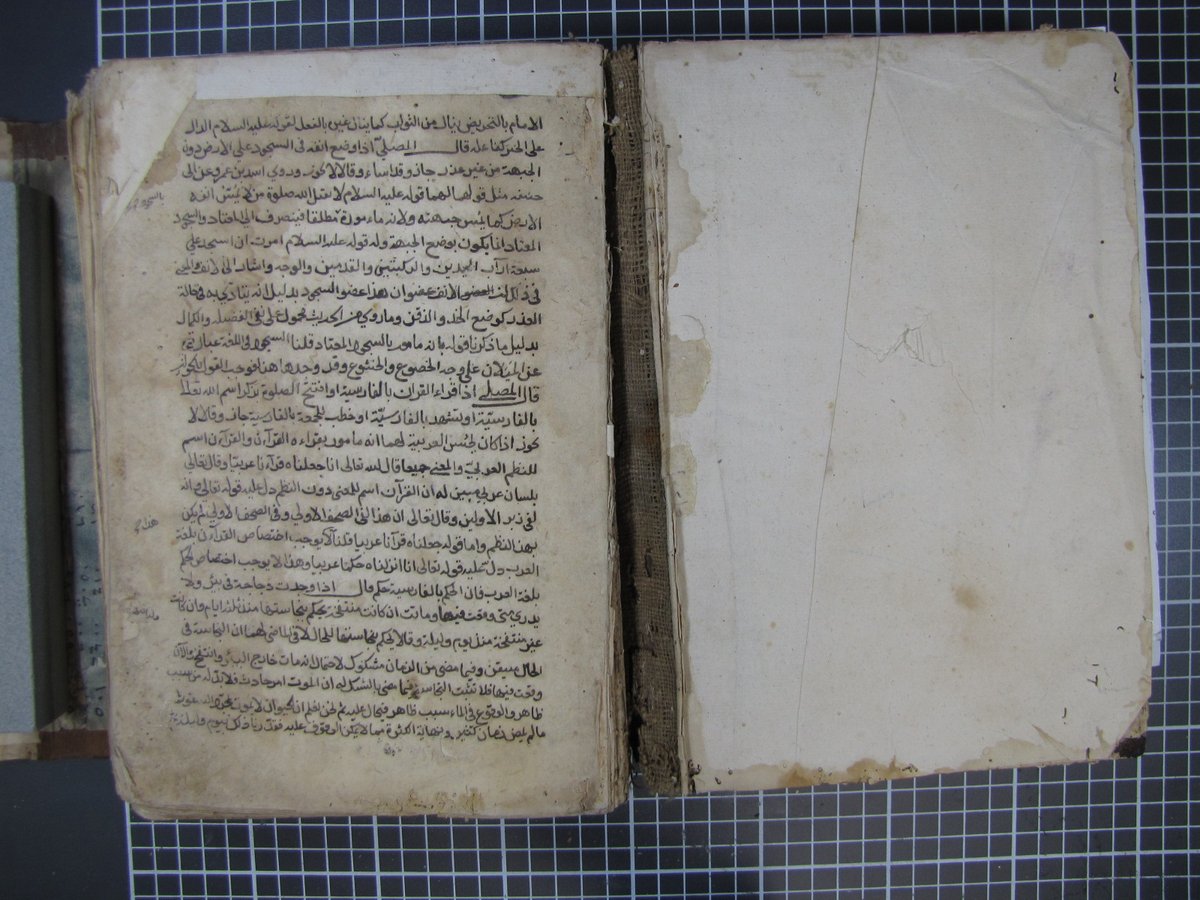 الامام بالتحريض ينال من الثواب كما ينال غيره بالفعل لقوله عليه السلام الدال
على الخير كفاعله قال المصلى اذا وضع انفه فى السجود على الارض دون
الجبهة من غير عذر جاز وقد اساء وقالا لا يجوز وروي اسد بن عمرو عن ابى
حنيفه مثل قولهما لهما قوله عليه السلام لا يقبل الله صلوة من لا يمس انفه
الارض كما يمس جبهته ولانه ماءمور مطلقا فينصرف الى المعتاد والسجود
المعتاد انما يكون بوضع الجبهة وله قوله عليه السلام امرت ان اسجد على
سبعة ارآب اليدين والركبتين والقدمين والوجه واشار الى الانف والمعنى
فى ذلك ان العضو الانف عضو ان هذا عضو السجود بدليل انه يتادي به فى حالة
العذر كوضع الخد والذقن وما روي من الحديث محمول على نفى الفضيلة والكمال
بدليل ما ذكرنا قوله بانه مامور بالسجود المعتاد قلنا السجود فى اللغة عبارة
عن الميلان على وجه الخضوع والخشوع وقد وجد هاهنا فوجب القول بالجواز
قال المصلى اذا قراء القران بالفارسية او افتتح الصلوة بذكر اسم الله تعالى
بالفارسيّة او تشهد بالفارسيّة او خطب للجمعة بالفارسية جاز وقالا لا
يجوز اذا كان يحسن العربية لهما انه مامور بقراءه القرآن والقرآن اسم
للنظم العربيّ والمعنى جميعا قال الله تعالى انا جعلناه قرآنا عربيّا وقال تعالى
بلسان عربي مبين له ان القرآن اسم للمعنى دون النظم دل عليه قوله تعالى وانه
لفى زبر الاولين وقال تعالى ان هذا لفى الصحف الاولي وفى الصحف الاولى لم يكن
بهذا النظم واما قوله جعلناه قرآنا عربيا قلنا لا يوجب اختصاص القرآن بلغة
العرب دل عليه قوله تعالى انا انزلناه حكما عربيا وهذا لا يوجب اختصاص الحكم
بلغة العرب فان الحكم بالفارسية حكم قال اذا وجدت دجاجة فى بئر ولا
يدري متى وقعت فيها وماتت ان كانت منتفخة يحكم بنجاستها منذ ثلثة ايام وان كانت
غير منتفخة منذ يوم وليلة وقالا يحكم بنجاستها للحال لا فى الماضى لهما ان النجاسة فى
الحال متيقن وفيما مضى من الزمان مشكوك لاحتمال انه مات خارج البئر وانتفخ والآن
وقعت فيها فلا تثبت النجاسة فيما مضى بالشك له ان الموت امر حادث فلا بد له من سبب
ظاهر والوقوع فى الماء سبب ظاهر فيحال عليه ثم نحن نعلم ان الحيوان لا يموت
مالم يمض زمان كثير ونهاية الكثرة مما لا يمكن الوقوف عليه فقدرنا ذلك بيوم وليلة